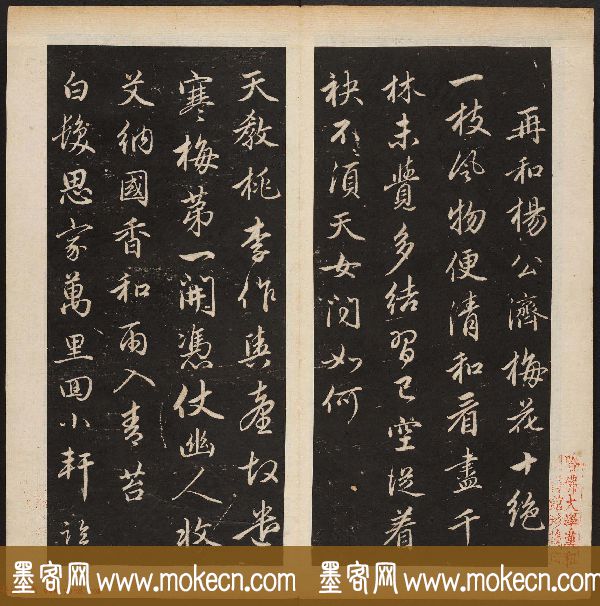 再和楊公濟梅花十絶
一枝風物便清和看盡千
林未覺多結習已空從着
袂不須天女問如何
天教桃李作輿臺故遣
寒梅第一開憑仗幽人收
艾納國香和雨入青苔
白髮思家萬里回小軒臨
哈佛大學漢和
墨客网 www.mokecn.com 墨客网 www.mokecn.com